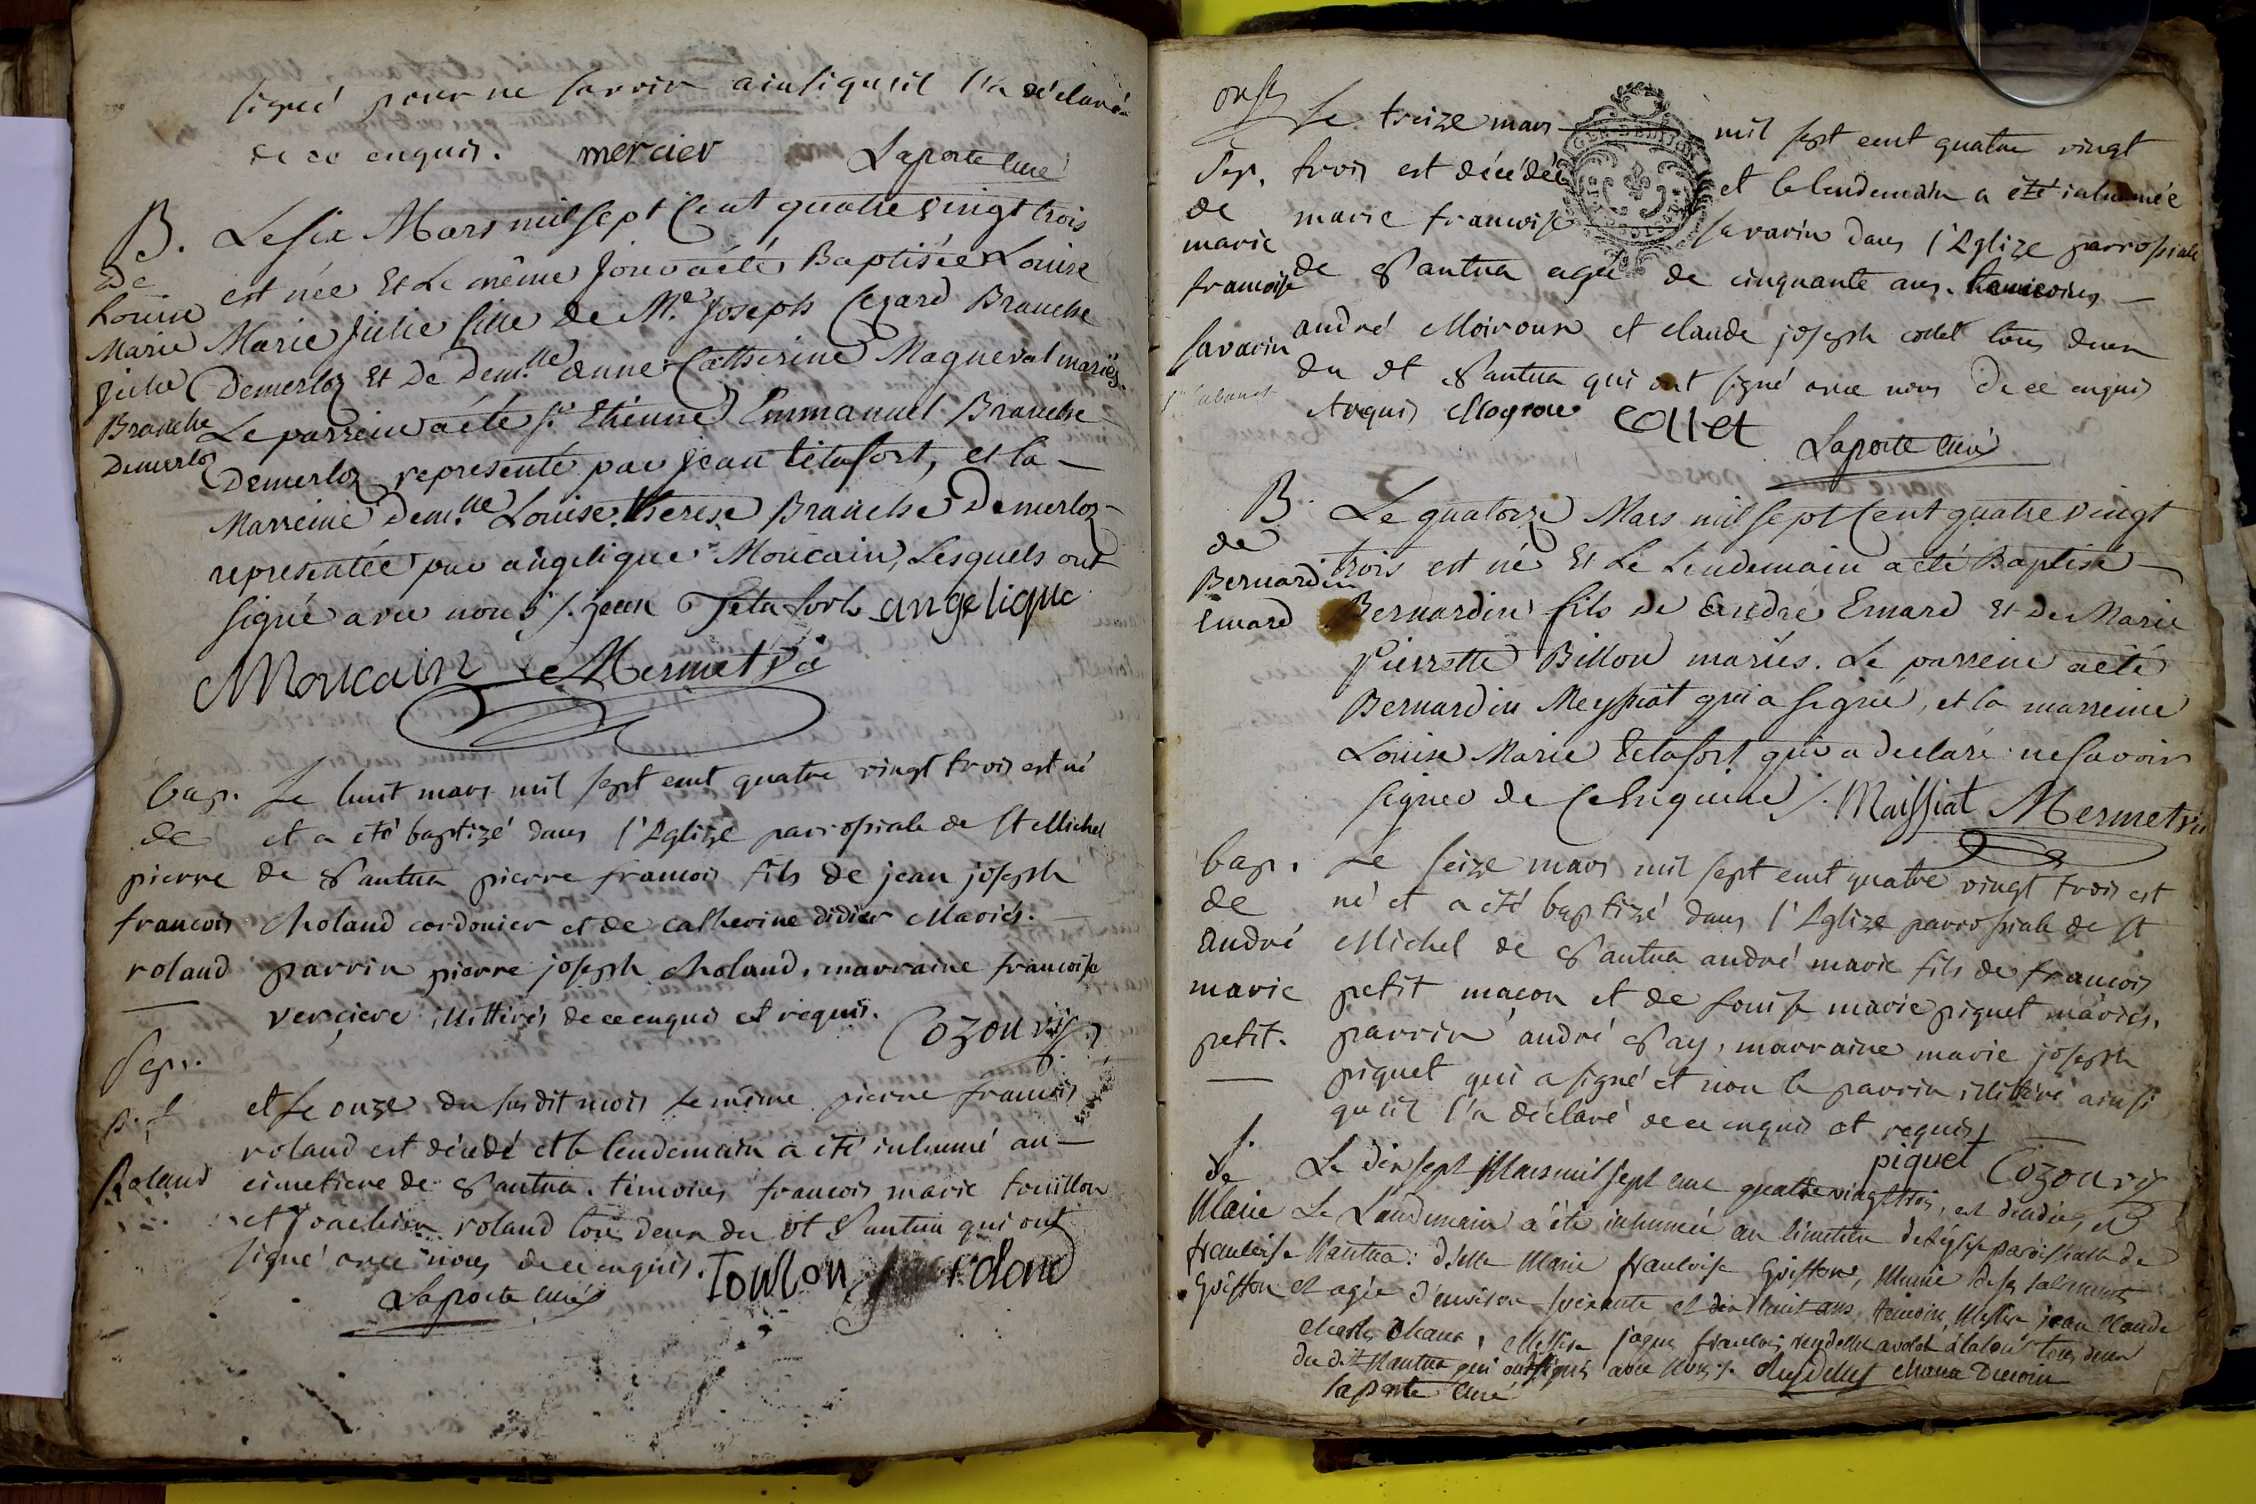 signé pour ne savoir ainsi qu'il l'a déclaré
de ce enquis. mercier Laporte curé
B.
de
Louise
Marie
Julie
Branche
Demerloz
Le six Mars mil sept Cent quatre vingt trois
est née Et Le même Jour a été Baptisée Louise
Marie Julie fille de Mr. Joseph Cezard Branche
Demerloz Et De Dem.lle anne Catherine Maqueval mariés.
Le parrein a été sr. Etienne Emmanuel Branche
Demerloz representé par jean tétafort, et la
Marreine Dem.lle Louise therese Branche Demerloz
representée par angelique Moucain, Lesquels ont
signé avec nous /. jean Tetafort angelique
Moucain Mermet vic
bap.
de
pierre
francois
roland
Le huit mars mil sept cent quatre vingt trois est né
et a été baptizé dans l'Eglize parrossiale de St Michel
de Nantua pierre francois fils de jean joseph
Roland cordonier et de catherine didier Mariés.
parrin pierre joseph Roland, marraine francoise
verciere illitérés de ce enquis et requis. Cozon vic
Sep.
p. f
Roland
et Le onze du susdit mois Le même pierre francois
roland est décédé et le lendemain a été inhumé au
cimetiere de Nantua. témoins francois marie touillon
et joachim roland tous deux du dt Nantua qui ont
signé avec nous de ce enquis. Touillon roland
Laporte curé
onse
Sep.
de
marie
francoise
savarin
Le treize mars mil sept cent quatre vingt
trois est décédée et le lendemain a été inhumée
marie francoise savarin dans l'Eglize parrossiale
de Nantua agée de cinquante ans. temoins
andré Moiroux et claude joseph collet tous deux
du dt Nantua qui ont signé avec nous de ce enquis
et requis Collet
Laporte curé
B.
de
Bernardin
Emard
Le quatorze Mars mil sept Cent quatre vingt
trois est né Et Le Lendemain a été Baptisé
Bernardin fils de André Emard Et de Marie
Pierrette Billon mariés. Le parrein a été
Bernardin Meyssiat qui a signé, et la marreine
Louise Marie tétafort qui a declaré ne savoir
signer de ce Enquise /. Maissiat Mermet vic
bap.
de
André
marie
petit.
Le seize mars mil sept cent quatre vingt trois est
né et a été baptizé dans l'Eglize parrossiale de St
Michel de Nantua andré marie fils de francois
petit maçon et de Louise marie piquet mariés.
parrin andré Nay, marraine marie joseph
piquet qui a signé et non le parrin illitéré ainsi
qu'il l'a déclaré de ce enquis et requis
piquet Cozon vic
S.
de
Marie
francoise
Goiffon
Le dix sept Mars mil sept cent quatre vingt trois, est décédée, et
Le Lendemain a été inhumée au Cimetiere de L'église paroissialle de
Nantua: d.lle Marie francoise Goiffon, Munie de ses sacrements
et agée d'environ soixante et dix huit ans témoins, Messire jean Claude
Charles Chana, Messire jaque francois tous deux
du dit Nantua qui ont signés avec Nous /. Chana
laporte Curé